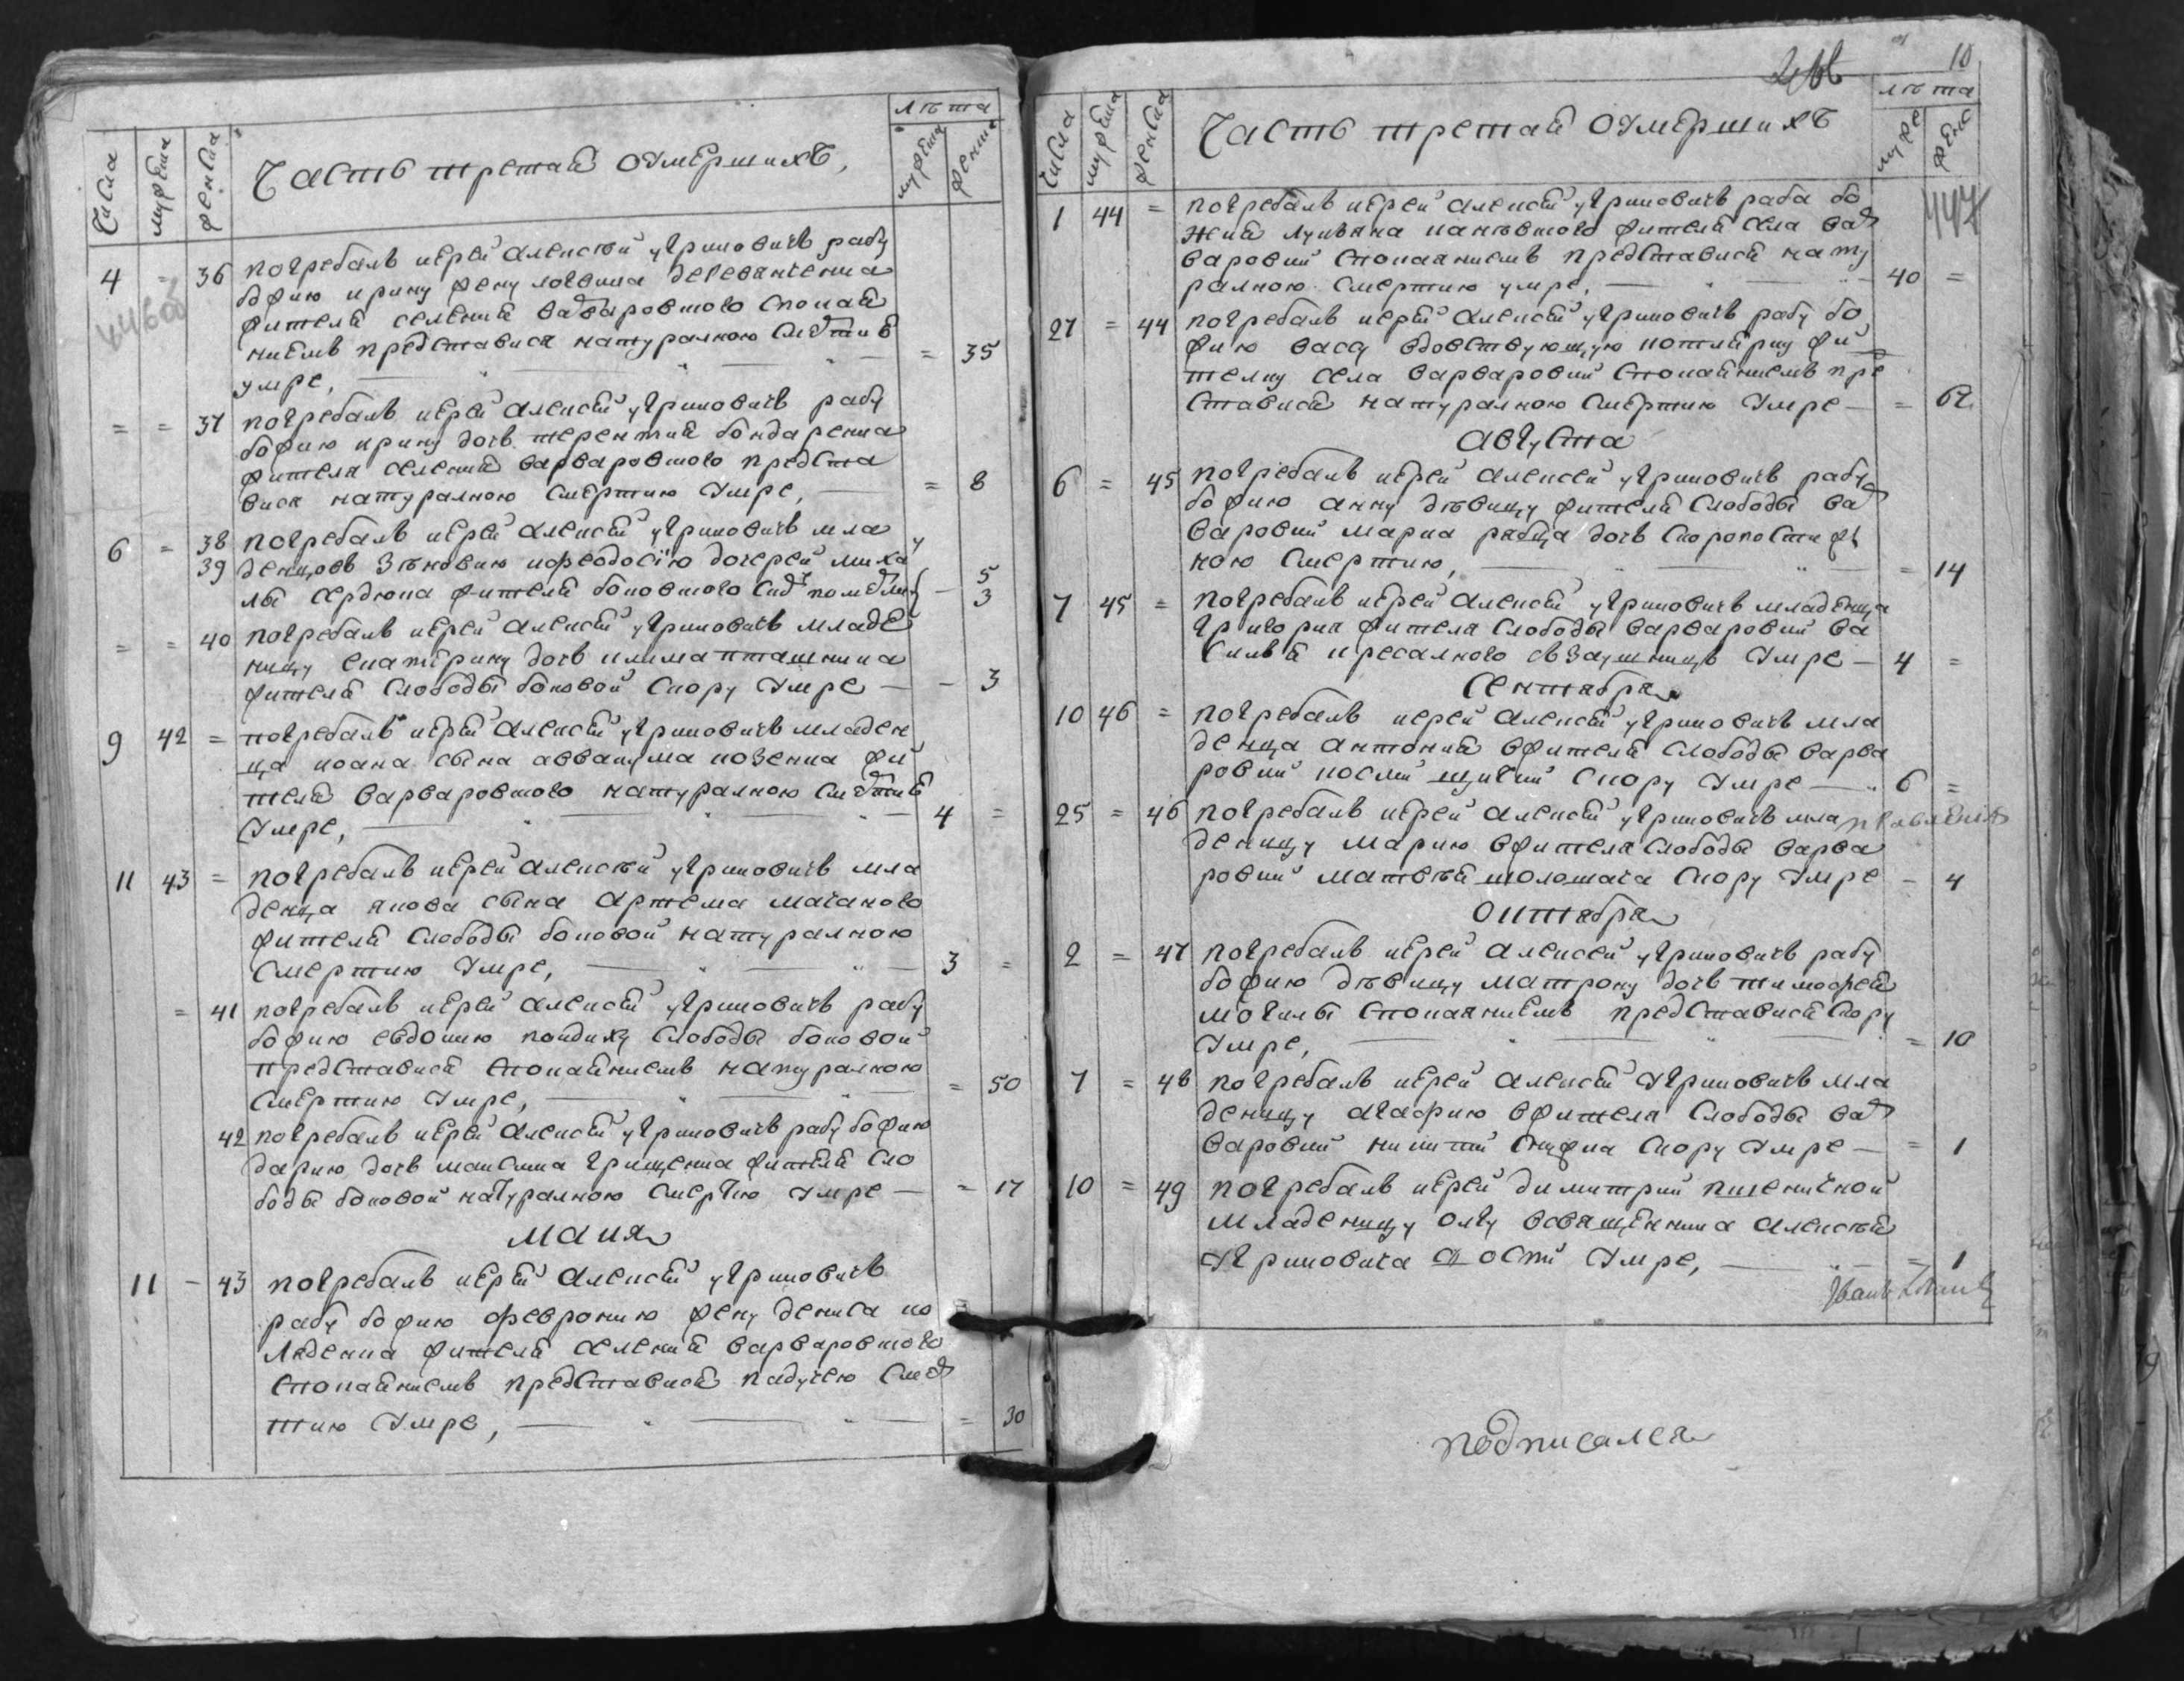 Числа мужеска женска Часть третая О Умершихъ, лѣта мужеска женска
4 = 36 погребалъ иерей Алексѣй угриновичъ рабу
божию ирину жену логвина
жителя селения варваровского Спокая
ниемъ представися натуралною Смертию
умре, = 35
= = 37 погребалъ иерей Алексей угриновичъ рабу
божию ирину дочь терентия бондаренка
жителя Селения варваровского предста
вися натуралною Смертию Умре, = 8
6 = 38 погребалъ иерей Алексей угриновичъ мла
39 денцовъ Зѣновию ифеодосїю дочерей миха
лы Сердюка жителя боковского 5 3
= = 40 погребалъ иерей Алексей угриновичъ младе
ницу екатерину дочь клима пташника
жителя Слободы боковой Скору Умре = 3
9 42 = погребалъ иерей Алексей угриновичъ младен
ца иоана сына аввакума козенка жи
теля варваровского натуралною Смертию
Умре, 4 =
11 43 = погребалъ иерей Алексѣй угриновичъ мла
денца якова сына Артема мачаного
жителя Слободы боковой натуралною
Смертию Умре, 3 =
= 41 погребалъ иерей Алексей угриновичъ рабу
божию евдокию Слободы боковой
представися Спокаяниемъ натуралною
Смертию Умре, = 50
42 погребалъ иерей Алексей угриновичъ рабу божию
дарию дочь максима грищенка жителя Сло
боды боковой натуралною Смертию Умре = 17
маия
11 - 43 погребалъ иерей Алексей угриновичъ
рабу божию февронию жену дениса ко
ляденка жителя Селения варваровского
Спокаяниемъ представися падучею Смер
тию Умре, = 30
10
Числа мужеска женска Часть третая О Умершихъ лѣта муже женс
447
1 44 = погребалъ иерей Алексей угриновичъ раба бо
жия лукяна жителя Села вар
варовки Спокаяниемъ представися нату
ралною Смертию умре, 40 =
27 = 44 погребалъ иерей Алексей угриновичъ рабу бо
жию васу вдовствующую жи
телку Села варваровки Спокаяниемъ пре
ставися натуралною Смертию Умре = 62
Августа
6 = 45 погребалъ иерей Алексей угриновичъ рабу
божию анну дѣвицу жителя Слободы вар
варовки марка рабца дочь Скоропостиж
ною Смертию, = 14
7 45 = погребалъ иерей Алексей угриновичъ младенца
григория жителя Слободы варваровки ва
силья Умре 4 =
Сентября
10 46 = погребалъ иерей Алексей угриновичъ мла
денца антония вжителя Слободы варва
ровки Скору Умре 6 =
25 = 46 погребалъ иерей Алексей угриновичъ мла
деницу марию вжителя Слободы варва
ровки матвѣя Скору Умре - 4
Октября
2 = 47 погребалъ иерей Алексей угриновичъ рабу
божию дѣвицу матрону дочь тимофея
могилы Спокаяниемъ представися Скору
Умре, = 10
7 = 48 погребалъ иерей Алексей Угриновичъ мла
деницу агафию вжителя Слободы вар
варовки никиты Скору Умре = 1
10 = 49 погребалъ иерей димитрий пшеничной
младеницу олгу всвященника Алексѣя
Угриновича Умре, = 1
подписался